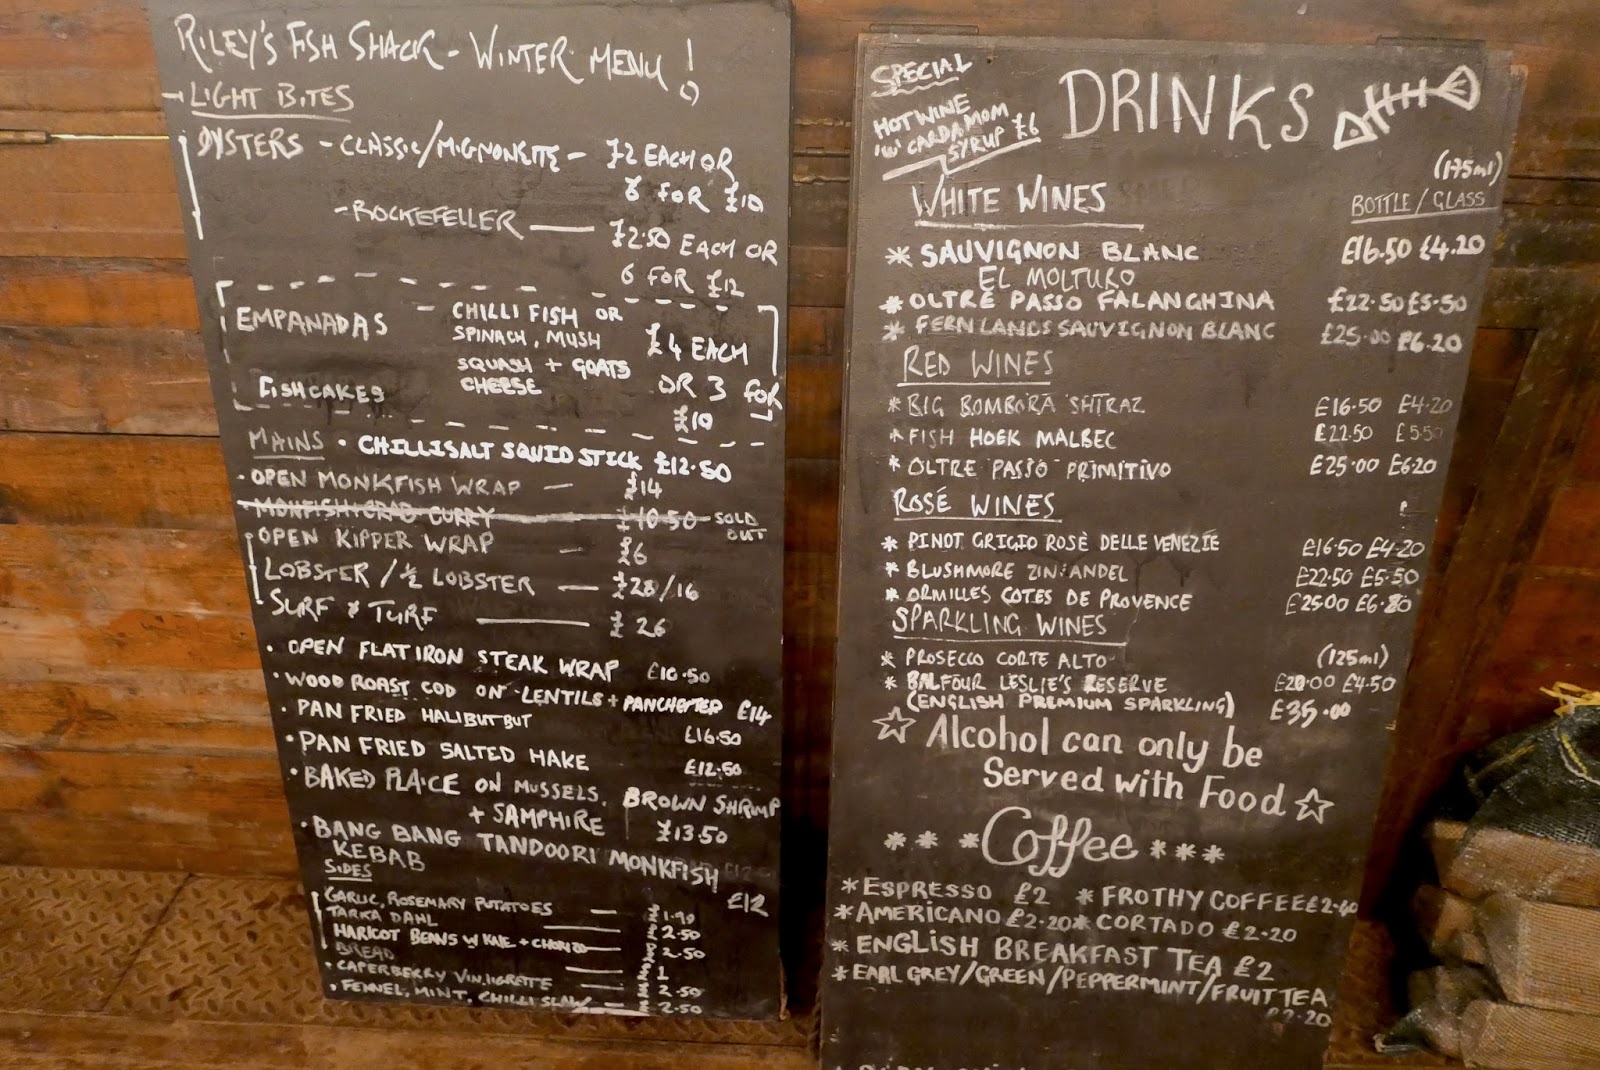 RILEY'S FISH SHACK - WINTER MENU!
LIGHT BITES
OYSTERS - CLASSIC/MIGNONETTE - £2 EACH OR
6 FOR £10
- ROCKEFELLER — £2.50 EACH OR
6 FOR £12
EMPANADAS - CHILLI FISH OR
SPINACH, MUSH
SQUASH + GOATS
CHEESE
£4 EACH
OR 3 FOR
£10
FISHCAKES
MAINS • CHILLI SALT SQUID STICK £12.50
• OPEN MONKFISH WRAP — £14
MONKFISH + CRAB CURRY £10.50 - SOLD
OUT
OPEN KIPPER WRAP — £6
LOBSTER / ½ LOBSTER — £28/16
SURF & TURF — £26
• OPEN FLAT IRON STEAK WRAP £10.50
• WOOD ROAST COD ON LENTILS + £14
• PAN FRIED HALIBUT BUT £16.50
• PAN FRIED SALTED HAKE £12.50
• BAKED PLAICE ON MUSSELS, BROWN SHRIMP
+ SAMPHIRE £13.50
• BANG BANG TANDOORI MONKFISH
KEBAB £12
SIDES
GARLIC, ROSEMARY POTATOES —
TARKA DAHL — £2.50
HARICOT BEANS W KALE + CHORIZO — £2.50
BREAD — £1
• CAPERBERRY — £2.50
• FENNEL, MINT, CHILLI SLAW — £2.50
SPECIAL
HOT WINE
'W' CARDAMOM
SYRUP £6
DRINKS
(175ml)
WHITE WINES BOTTLE / GLASS
* SAUVIGNON BLANC £16.50 £4.20
EL MOLTURO
* OLTRE PASSO FALANGHINA £22.50 £5.50
* FERNLANDS SAUVIGNON BLANC £25.00 £6.20
RED WINES
* BIG BOMBORA SHIRAZ £16.50 £4.20
* FISH HOEK MALBEC £22.50 £5.50
* OLTRE PASSO PRIMITIVO £25.00 £6.20
ROSÉ WINES
* PINOT GRIGIO ROSÈ DELLE VENEZIE £16.50 £4.20
* BLUSHMORE ZINFANDEL £22.50 £5.50
* ORMILLES COTES DE PROVENCE £25.00 £6.80
SPARKLING WINES
(125ml)
* PROSECCO CORTE ALTO £20.00 £4.50
* BALFOUR LESLIE'S RESERVE
(ENGLISH PREMIUM SPARKLING) £35.00
☆ Alcohol can only be
Served with Food ☆
* * * Coffee * * *
* ESPRESSO £2 * FROTHY COFFEE £2.40
* AMERICANO £2.20 * CORTADO £2.20
* ENGLISH BREAKFAST TEA £2
* EARL GREY/GREEN/PEPPERMINT/FRUIT TEA
£2.20